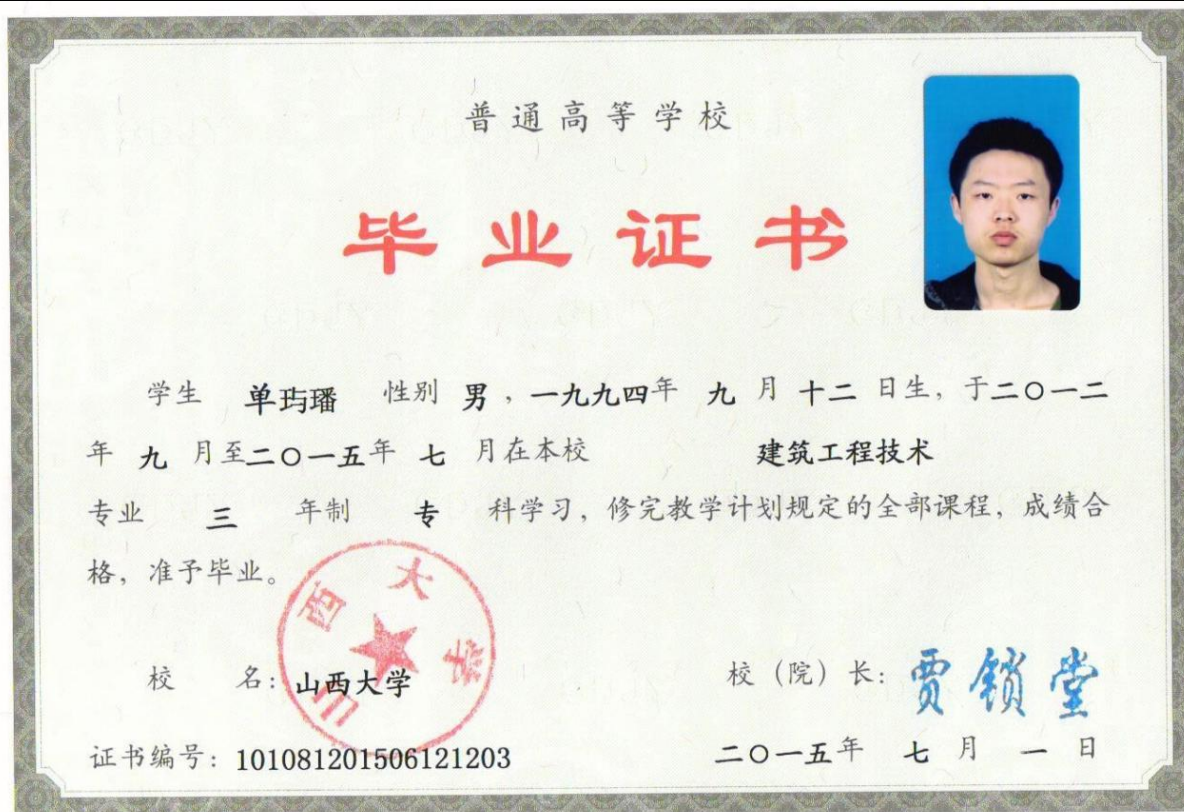 普通高等学校
毕业证书
学生 单玙璠 性别 男，一九九四年 九 月 十二 日生，于二〇一二
年 九 月至二〇一五年 七 月在本校 建筑工程技术
专业 三 年制 专 科学习，修完教学计划规定的全部课程，成绩合
格，准予毕业。
山西大学
校 名：山西大学
校（院）长：贾锁堂
证书编号：101081201506121203
二〇一五年 七 月 一 日